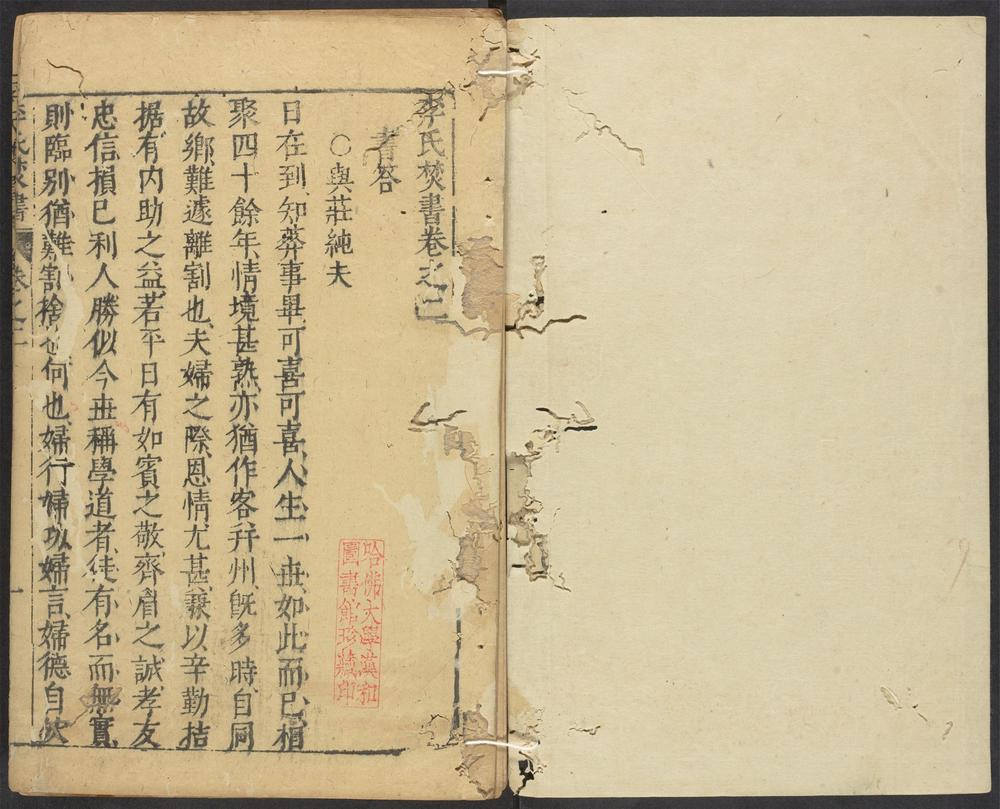 李氏焚書卷之二
書答
○與莊純夫
日在到、知葬事畢、可喜可喜、人生一世、如此而已、相
聚四十餘年、情境甚熟、亦猶作客并州、旣多時、自同
故鄉、難遽離割也、夫婦之際、恩情尤甚、兼以辛勤拮
据、有內助之益、若平日有如賓之敬、齊眉之誠、孝友
忠信、損已利人、勝似今世稱學道者、徒有名而無實、
則臨別猶難割捨也、何也、婦行婦功婦言婦德、自
李氏焚書
卷之二
一
哈佛大學漢和
圖書館珍藏印